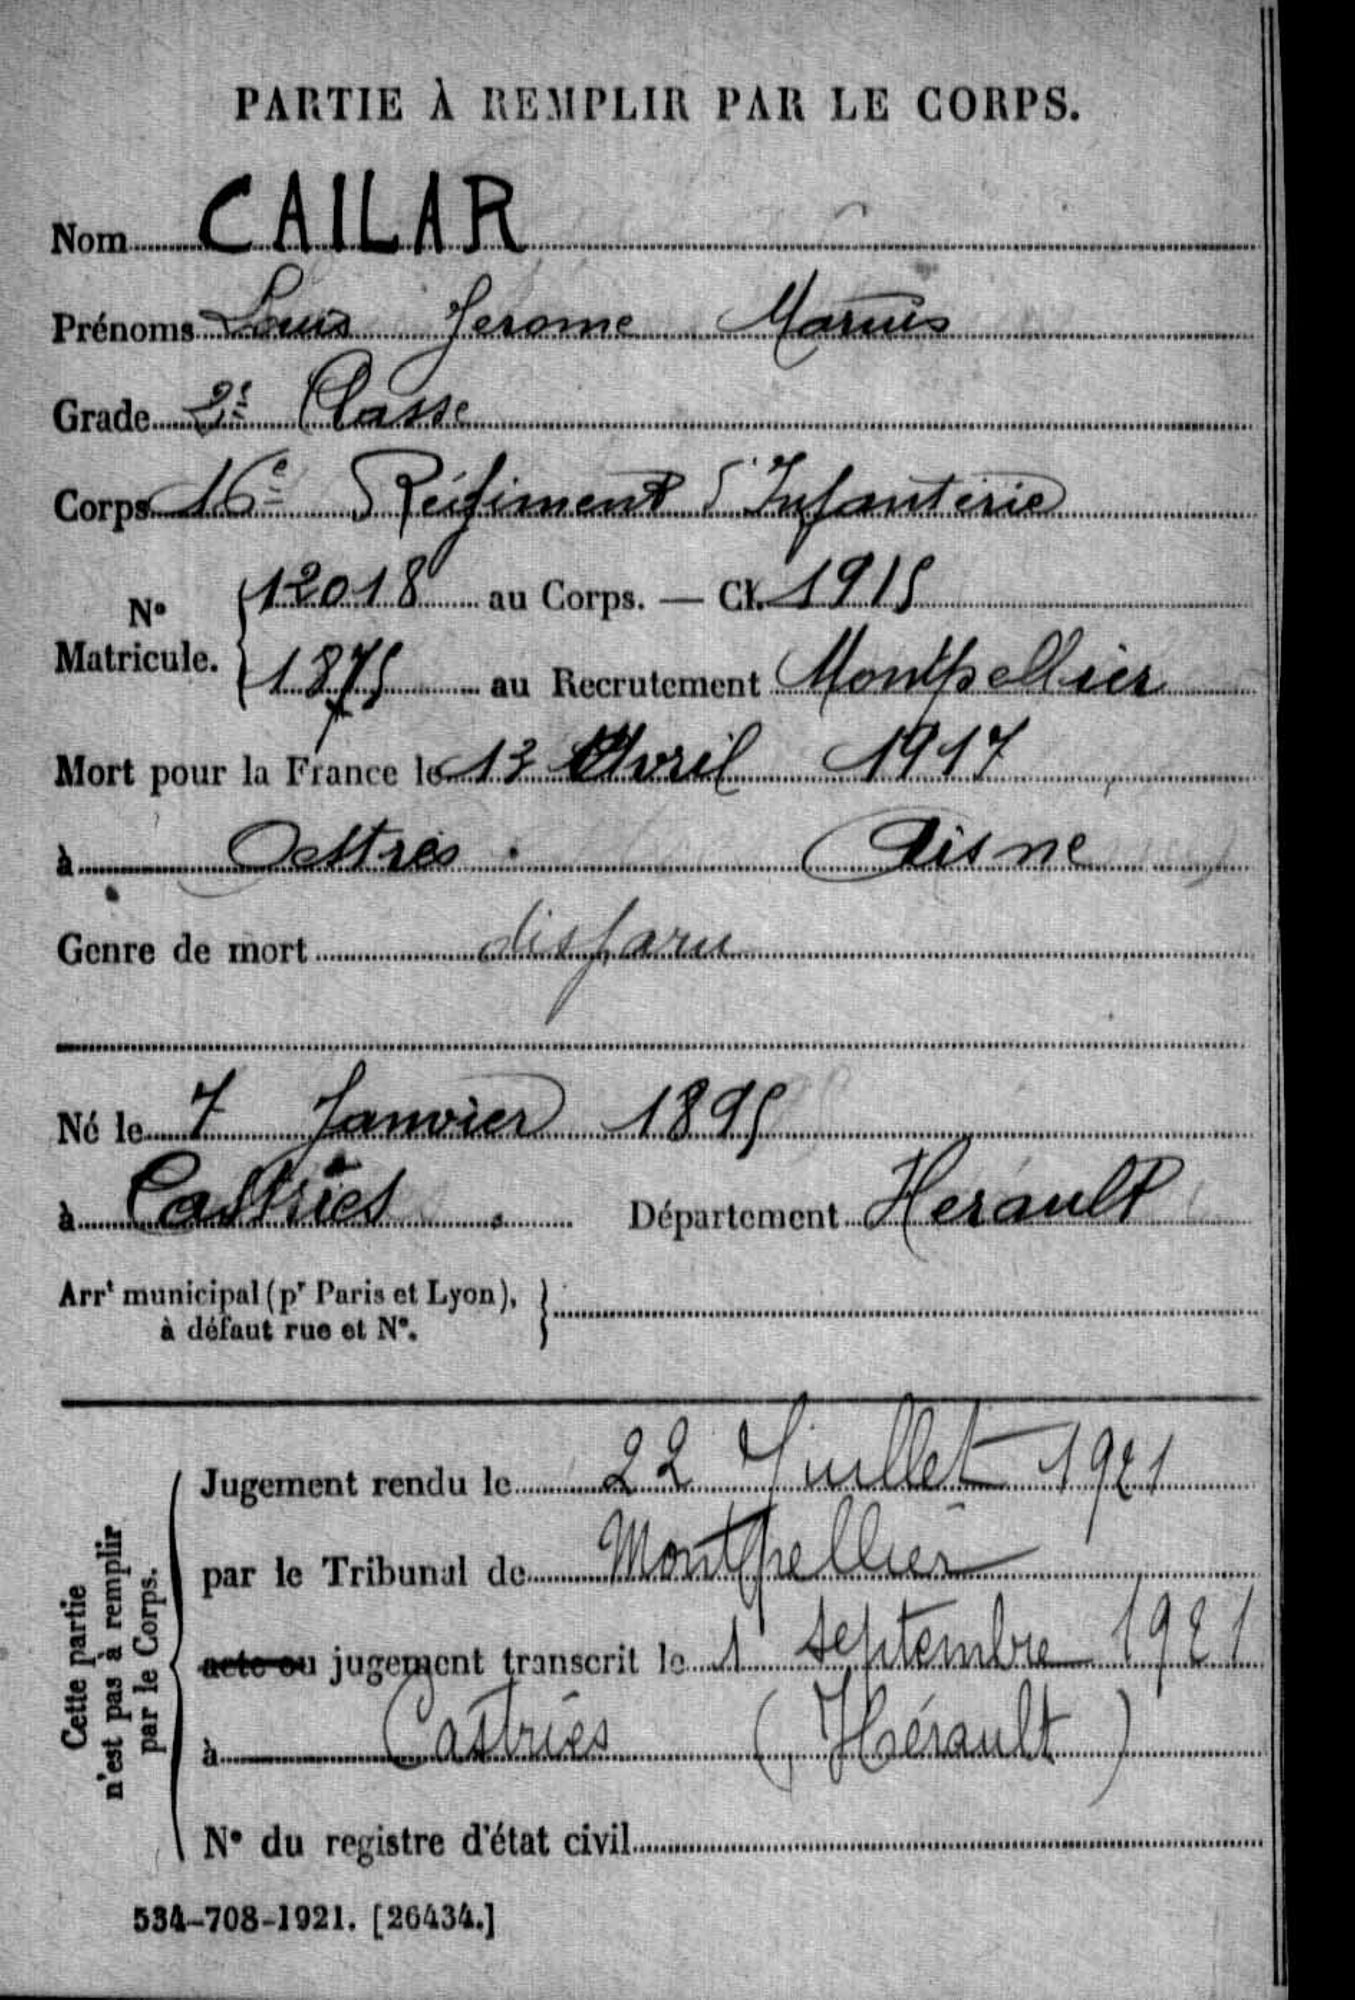 PARTIE À REMPLIR PAR LE CORPS.
Nom CAILAR
Prénoms Louis Jerome Marius
Grade 2e Classe
Corps 16e Régiment d'Infanterie
No Matricule. 12018 au Corps. — Cl. 1915
1875 au Recrutement Montpellier
Mort pour la France le 13 Avril 1917
à Oestres. Aisne
Genre de mort disparu
Né le 7 Janvier 1895
à Castries. Département Herault
Arrt municipal (pr Paris et Lyon),
à défaut rue et No.
Cette partie
n'est pas à remplir
par le Corps.
Jugement rendu le 22 Juillet 1921
par le Tribunal de Montpellier
acte ou jugement transcrit le 1 septembre 1921
à Castries (Hérault)
No du registre d'état civil
534-708-1921. [26434.]